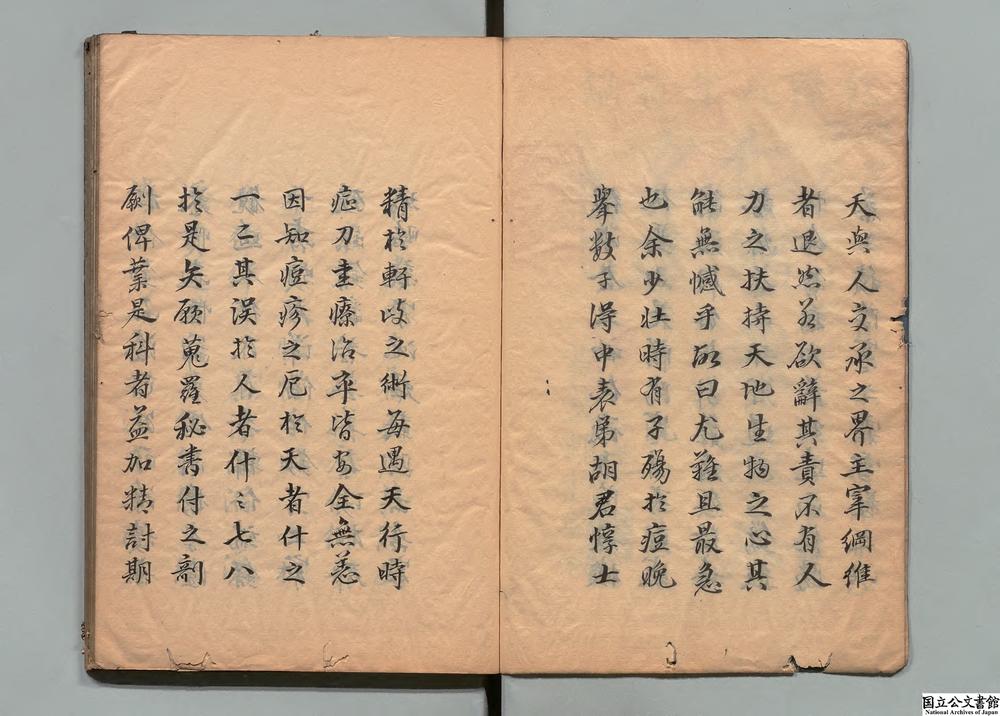 天與人交承之界主宰綱維
者退然若欲辭其責不有人
力之扶持天地生物之心其
能無憾乎故曰尤難且最急
也余少壯時有子殤於痘晚
舉數子得中表弟胡君惇士
精於軒岐之術每遇天行時
症刀圭療治率皆安全無恙
因知痘疹之厄於天者什之
一二其誤於人者什之七八
於是矢願蒐羅秘書付之剞
劂俾業是科者益加精討期
国立公文書館
National Archives of Japan